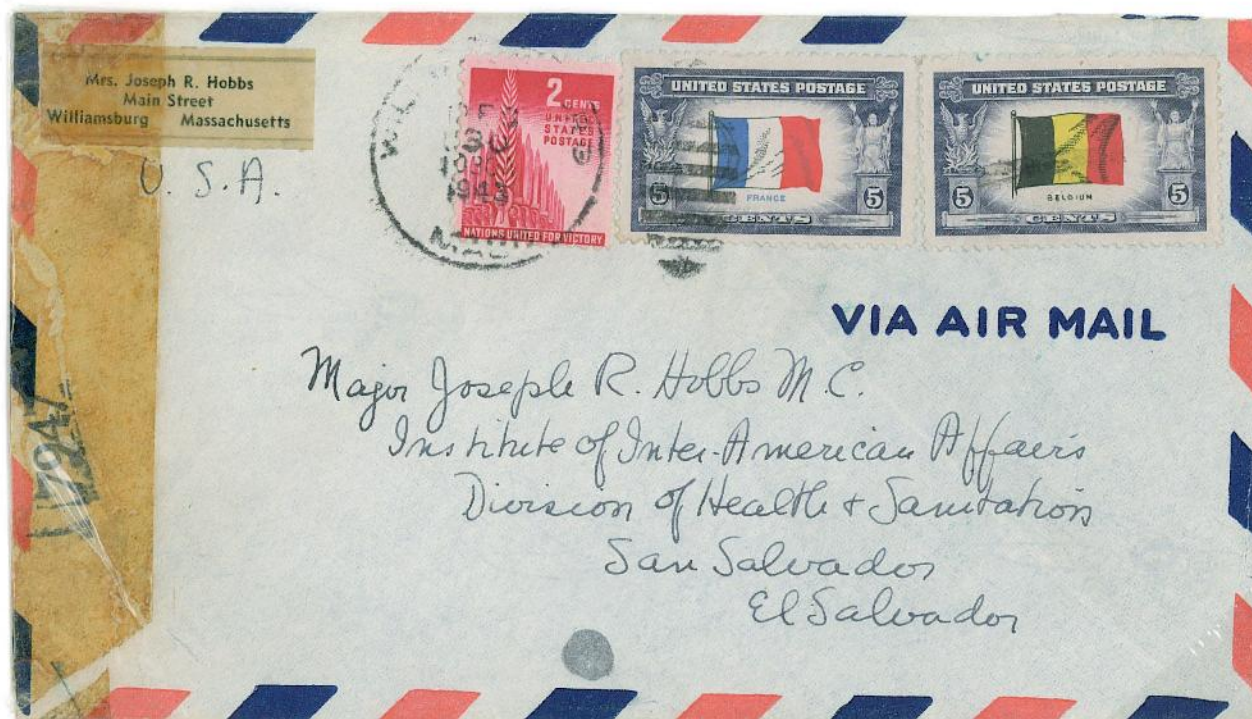 Mrs. Joseph R. Hobbs
Main Street
Williamsburg Massachusetts
U. S. A.
30
1943
MASS
2 CENTS
UNITED
STATES
POSTAGE
NATIONS UNITED FOR VICTORY
UNITED STATES POSTAGE
FRANCE
5 5
CENTS
UNITED STATES POSTAGE
BELGIUM
5 5
CENTS
VIA AIR MAIL
Major Joseph R. Hobbs M.C.
Institute of Inter-American Affairs
Division of Health & Sanitation
San Salvador
El Salvador